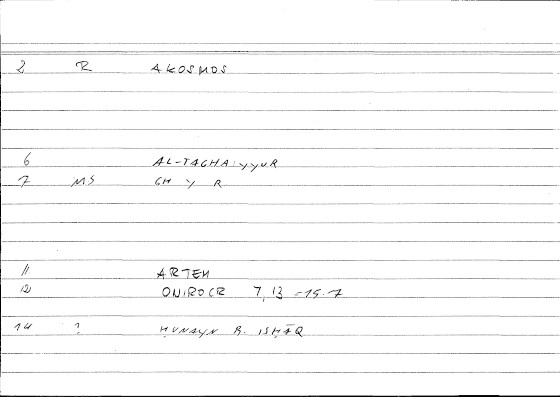 2 R AKOSMOS
6 AL-TAGHAIYYUR
7 MS GH Y R
11 ARTEM
12 ONIROCR 7, 13 - 15.7
14 ? ḤUNAYN B. ISḤĀQ